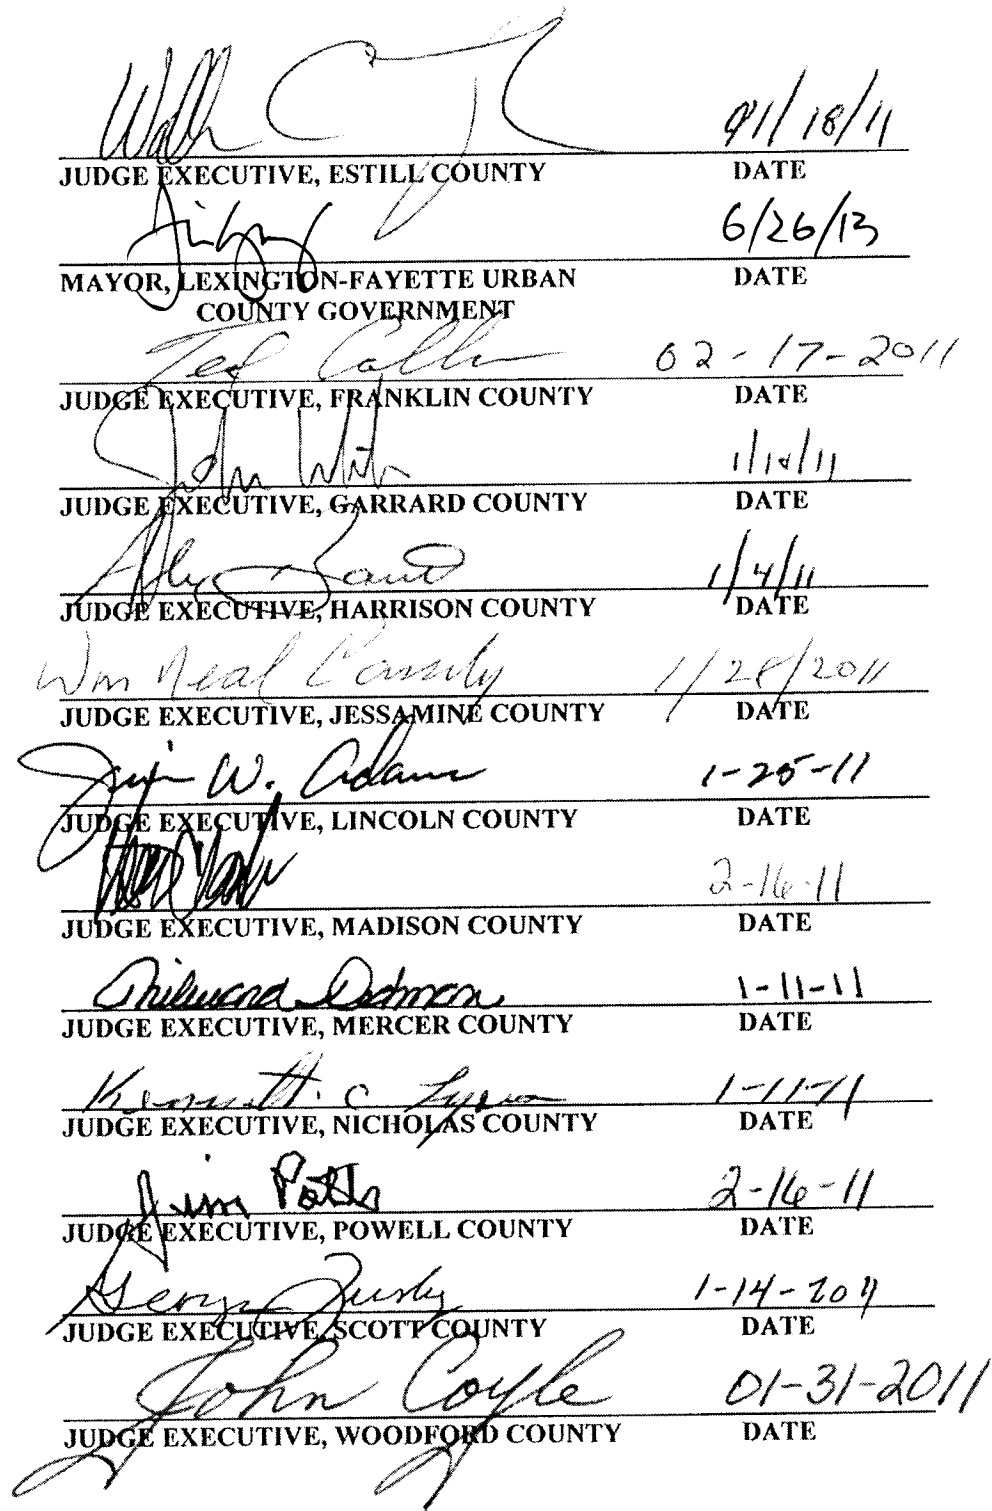 01/18/11
JUDGE EXECUTIVE, ESTILL COUNTY DATE
6/26/13
MAYOR, LEXINGTON-FAYETTE URBAN DATE
COUNTY GOVERNMENT
Ted 02-17-2011
JUDGE EXECUTIVE, FRANKLIN COUNTY DATE
John
JUDGE EXECUTIVE, GARRARD COUNTY DATE
1/4/11
JUDGE EXECUTIVE, HARRISON COUNTY DATE
Wm Neal Cassity 1/28/2011
JUDGE EXECUTIVE, JESSAMINE COUNTY DATE
Jim W. Adams 1-25-11
JUDGE EXECUTIVE, LINCOLN COUNTY DATE
2-16-11
JUDGE EXECUTIVE, MADISON COUNTY DATE
Milward Dedman 1-11-11
JUDGE EXECUTIVE, MERCER COUNTY DATE
Kenneth C 1-11-11
JUDGE EXECUTIVE, NICHOLAS COUNTY DATE
Jim Potts 2-16-11
JUDGE EXECUTIVE, POWELL COUNTY DATE
George Lusby 1-14-2011
JUDGE EXECUTIVE, SCOTT COUNTY DATE
John Coyle 01-31-2011
JUDGE EXECUTIVE, WOODFORD COUNTY DATE